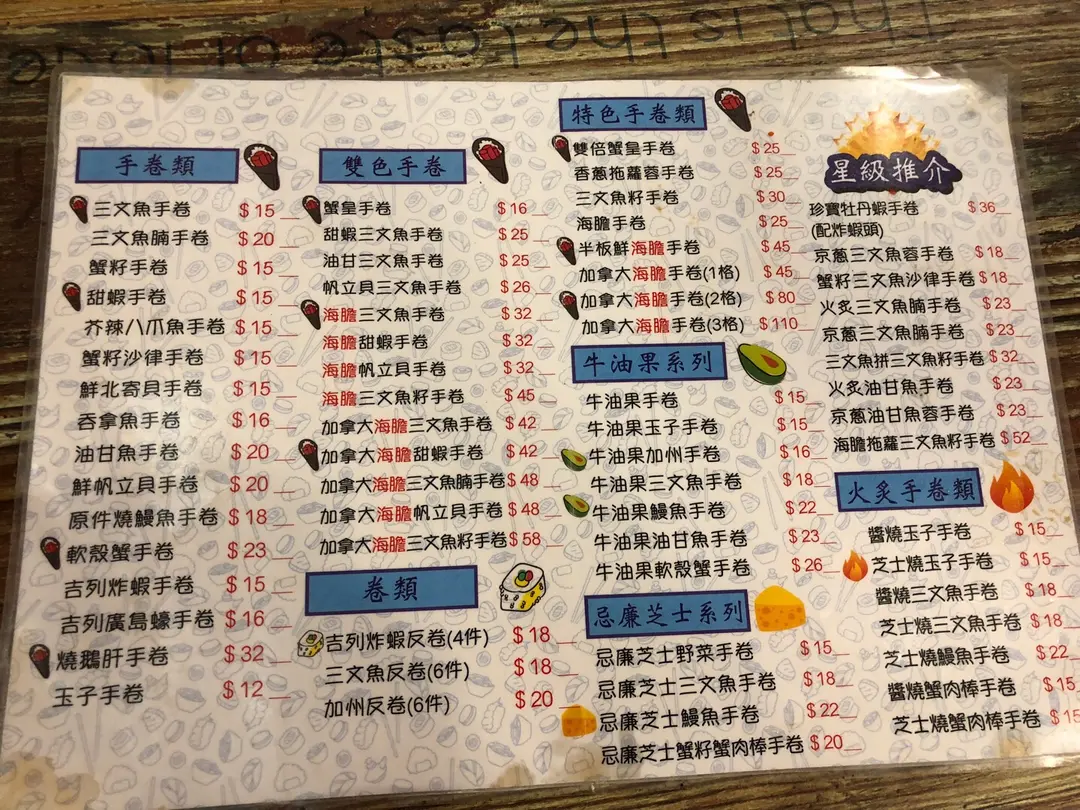 That is the taste of love
手卷類
三文魚手卷 $15
三文魚腩手卷 $20
蟹籽手卷 $15
甜蝦手卷 $15
芥辣八爪魚手卷 $15
蟹籽沙律手卷 $15
鮮北寄貝手卷 $15
吞拿魚手卷 $16
油甘魚手卷 $20
鮮帆立貝手卷 $20
原件燒鰻魚手卷 $18
軟殼蟹手卷 $23
吉列炸蝦手卷 $15
吉列廣島蠔手卷 $16
燒鵝肝手卷 $32
玉子手卷 $12
雙色手卷
蟹皇手卷 $16
甜蝦三文魚手卷 $25
油甘三文魚手卷 $25
帆立貝三文魚手卷 $26
海膽三文魚手卷 $32
海膽甜蝦手卷 $32
海膽帆立貝手卷 $32
海膽三文魚籽手卷 $45
加拿大海膽三文魚手卷 $42
加拿大海膽甜蝦手卷 $42
加拿大海膽三文魚腩手卷 $48
加拿大海膽帆立貝手卷 $48
加拿大海膽三文魚籽手卷 $58
卷類
吉列炸蝦反卷(4件) $18
三文魚反卷(6件) $18
加州反卷(6件) $20
特色手卷類
雙倍蟹皇手卷 $25
香蔥拖蘿蓉手卷 $25
三文魚籽手卷 $30
海膽手卷 $25
半板鮮海膽手卷 $45
加拿大海膽手卷(1格) $45
加拿大海膽手卷(2格) $80
加拿大海膽手卷(3格) $110
牛油果系列
牛油果手卷 $15
牛油果玉子手卷 $15
牛油果加州手卷 $16
牛油果三文魚手卷 $18
牛油果鰻魚手卷 $22
牛油果油甘魚手卷 $23
牛油果軟殼蟹手卷 $26
忌廉芝士系列
忌廉芝士野菜手卷 $15
忌廉芝士三文魚手卷 $18
忌廉芝士鰻魚手卷 $22
忌廉芝士蟹籽蟹肉棒手卷 $20
星級推介
珍寶牡丹蝦手卷 $36
(配炸蝦頭)
京蔥三文魚蓉手卷 $18
蟹籽三文魚沙律手卷 $18
火炙三文魚腩手卷 $23
京蔥三文魚腩手卷 $23
三文魚拼三文魚籽手卷 $32
火炙油甘魚手卷 $23
京蔥油甘魚蓉手卷 $23
海膽拖蘿三文魚籽手卷 $52
火炙手卷類
醬燒玉子手卷 $15
芝士燒玉子手卷 $15
醬燒三文魚手卷 $18
芝士燒三文魚手卷 $18
芝士燒鰻魚手卷 $22
醬燒蟹肉棒手卷 $15
芝士燒蟹肉棒手卷 $15